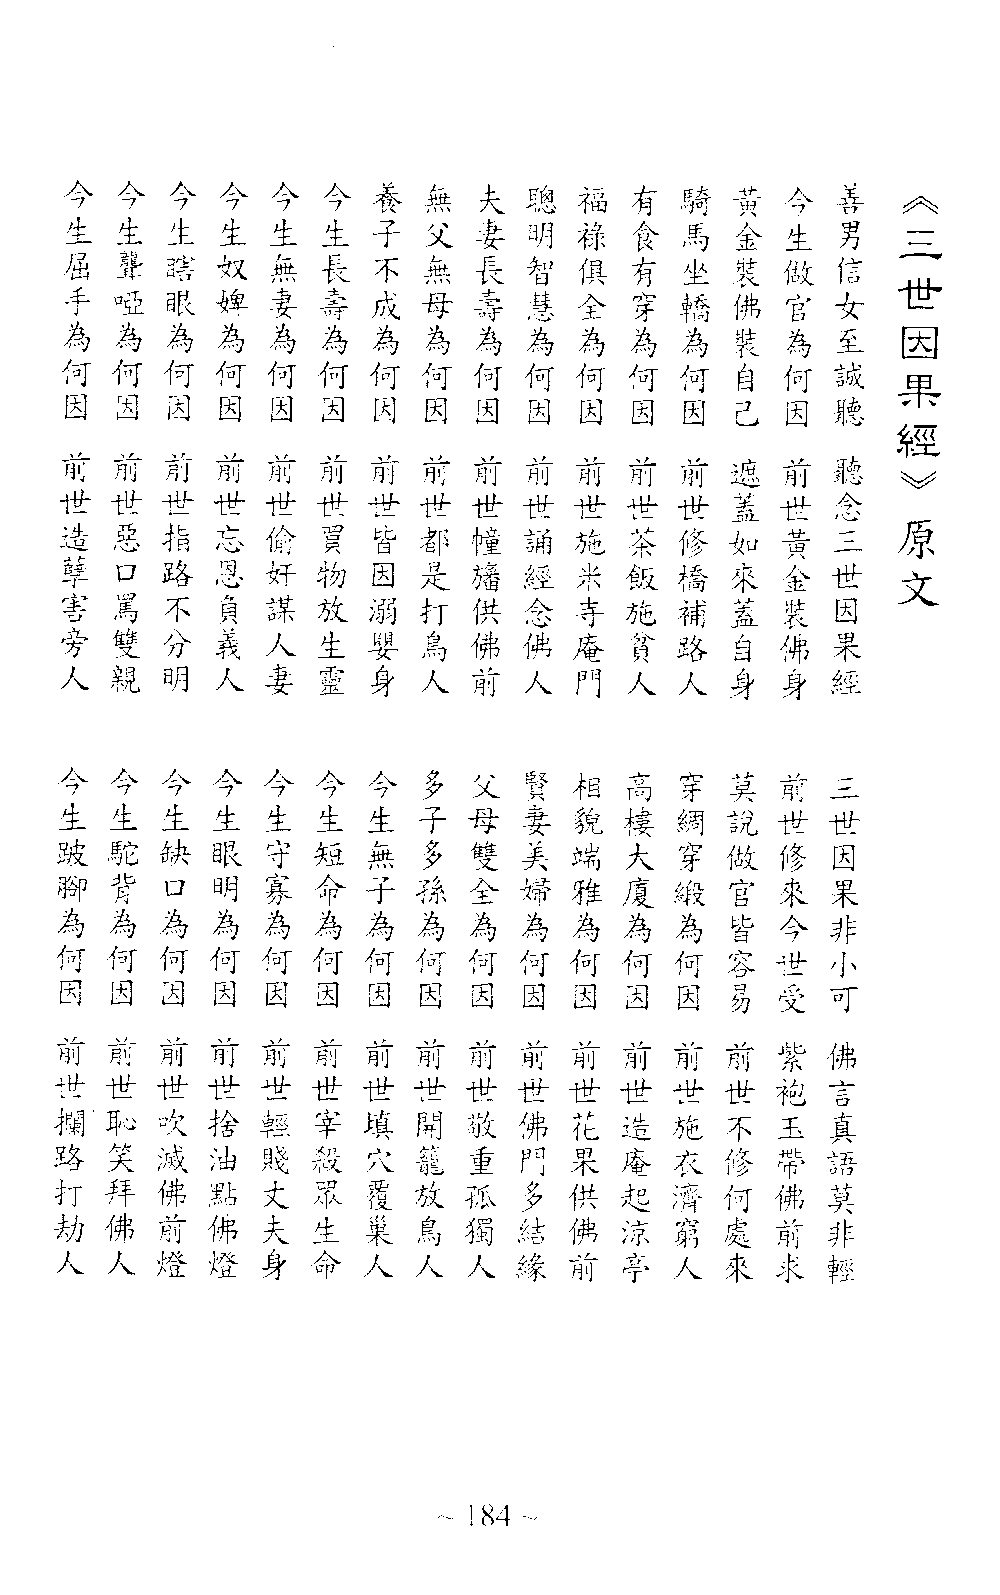 《三世因果經》原文
善男信女至誠聽 聽念三世因果經 三世因果非小可 佛言真語莫非輕
今生做官為何因 前世黃金裝佛身 前世修來今世受 紫袍玉帶佛前求
黃金裝佛裝自己 遮蓋如來蓋自身 莫說做官皆容易 前世不修何處來
騎馬坐轎為何因 前世修橋補路人 穿綢穿緞為何因 前世施衣濟窮人
有食有穿為何因 前世茶飯施貧人 高樓大廈為何因 前世造庵起涼亭
福祿俱全為何因 前世施米寺庵門 相貌端雅為何因 前世花果供佛前
聰明智慧為何因 前世誦經念佛人 賢妻美婦為何因 前世佛門多結緣
夫妻長壽為何因 前世幢旛供佛前 父母雙全為何因 前世敬重孤獨人
無父無母為何因 前世都是打鳥人 多子多孫為何因 前世開籠放鳥人
養子不成為何因 前世皆因溺嬰身 今生無子為何因 前世填穴覆巢人
今生長壽為何因 前世買物放生靈 今生短命為何因 前世宰殺眾生命
今生無妻為何因 前世偷奸謀人妻 今生守寡為何因 前世輕賤丈夫身
今生奴婢為何因 前世忘恩負義人 今生眼明為何因 前世捨油點佛燈
今生瞎眼為何因 前世指路不分明 今生缺口為何因 前世吹滅佛前燈
今生聾啞為何因 前世惡口罵雙親 今生駝背為何因 前世恥笑拜佛人
今生屈手為何因 前世造孽害旁人 今生跛腳為何因 前世攔路打劫人
~ 184 ~